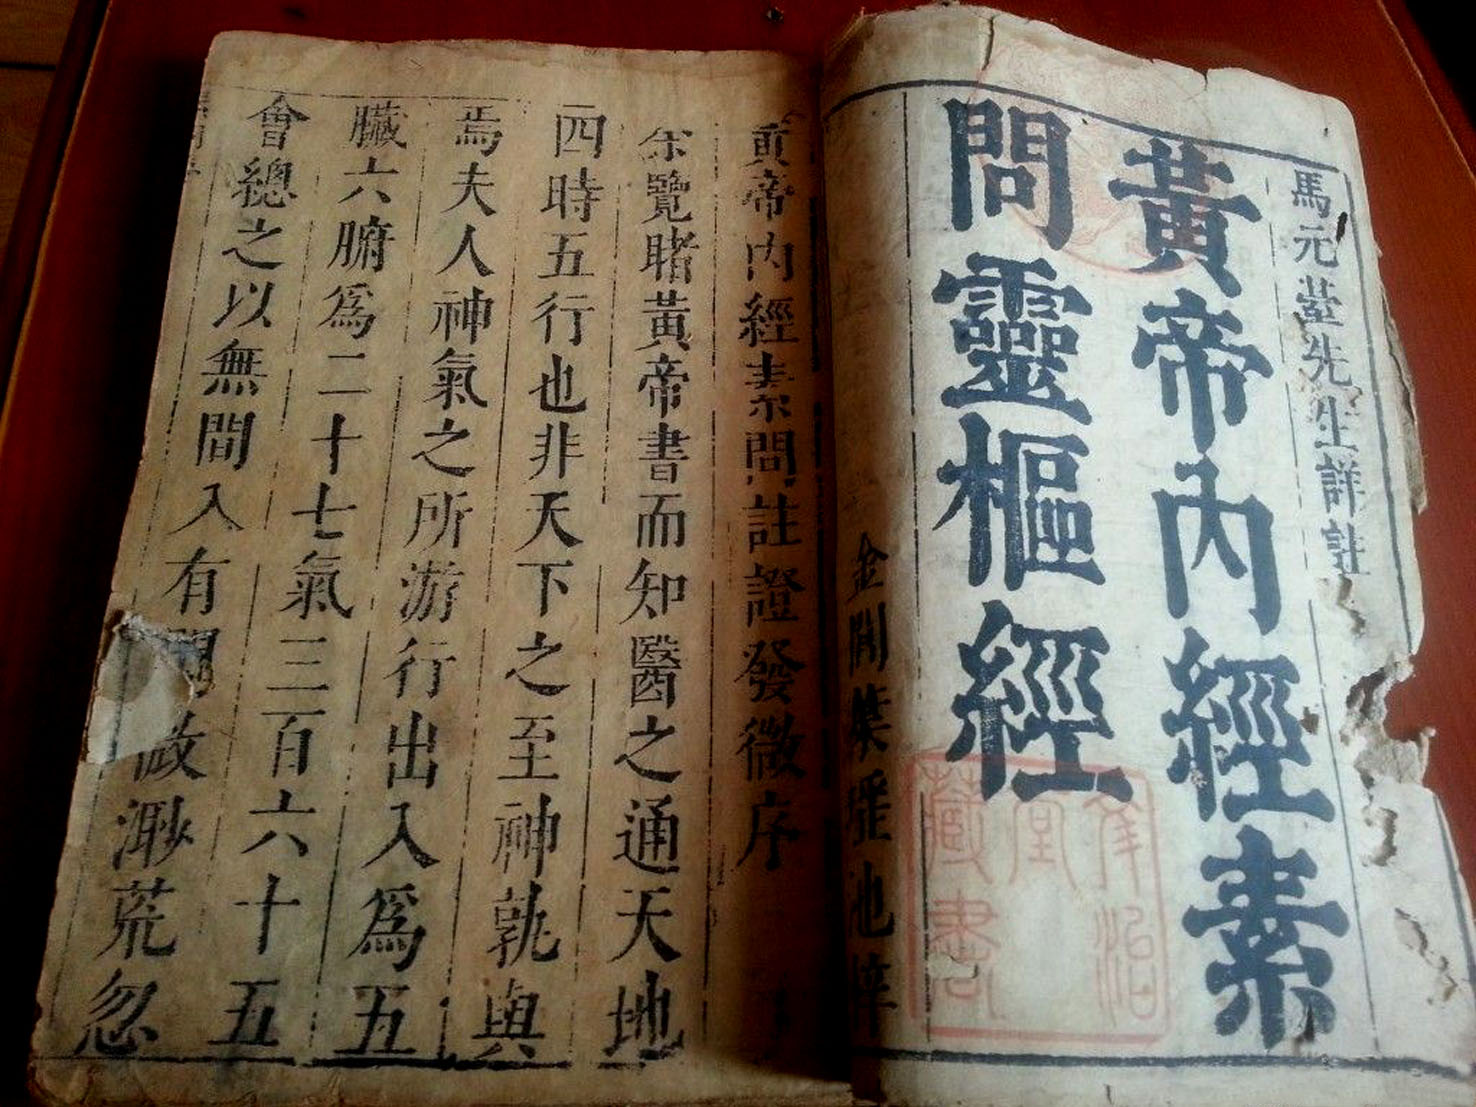 馬元臺先生詳註
黃帝內經素
問靈樞經
金閶葉瑤池梓
黃帝內經素問註證發微序
余覽睹黃帝書而知醫之通天地
四時五行也非天下之至神孰與
焉夫人神氣之所游行出入爲五
臟六腑爲二十七氣三百六十五
會總之以無間入有間故渺荒忽
藏書